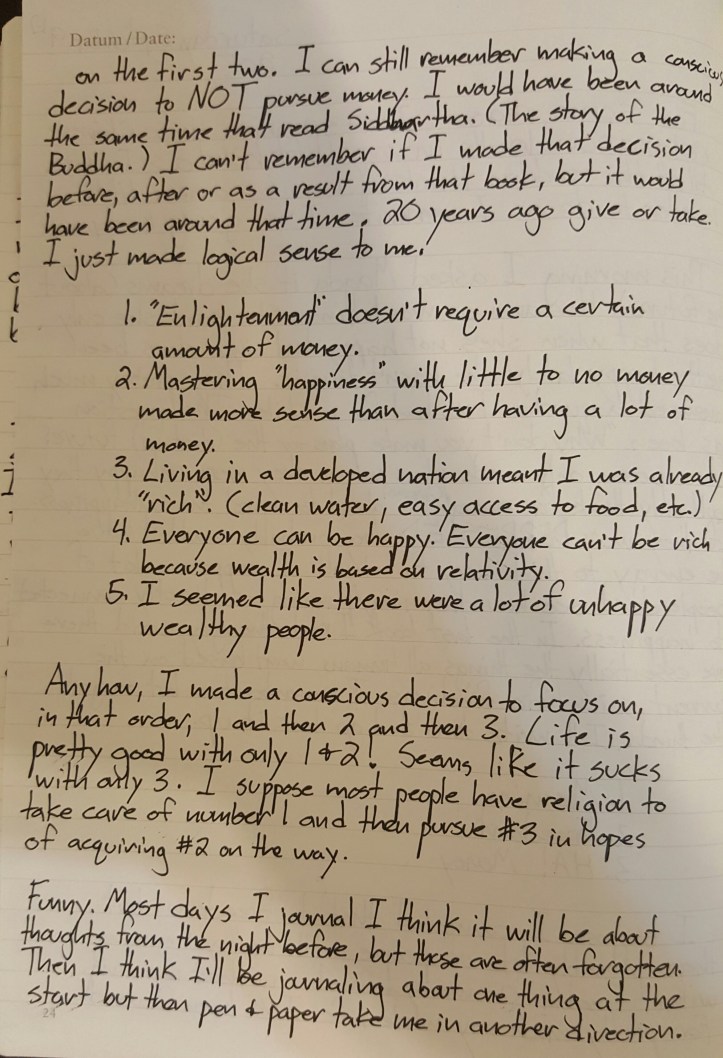 Datum / Date:
on the first two. I can still remember making a conscious
decision to NOT pursue money. I would have been around
the same time that read Siddhartha. (The story of the
Buddha.) I can't remember if I made that decision
before, after or as a result from that book, but it would
have been around that time. 20 years ago give or take.
I just made logical sense to me.
1. "Enlightenment" doesn't require a certain
amount of money.
2. Mastering "happiness" with little to no money
made more sense than after having a lot of
money.
3. Living in a developed nation meant I was already
"rich". (clean water, easy access to food, etc.)
4. Everyone can be happy. Everyone can't be rich
because wealth is based on relativity.
5. I seemed like there were a lot of unhappy
wealthy people.
Anyhow, I made a conscious decision to focus on,
in that order, 1 and then 2 and then 3. Life is
pretty good with only 1 & 2! Seems like it sucks
with only 3. I suppose most people have religion to
take care of number 1 and then pursue #3 in hopes
of acquiring #2 on the way.
Funny. Most days I journal I think it will be about
thoughts from the night before, but those are often forgotten.
Then I think I'll be journaling about one thing at the
start but then pen & paper take me in another direction.
24